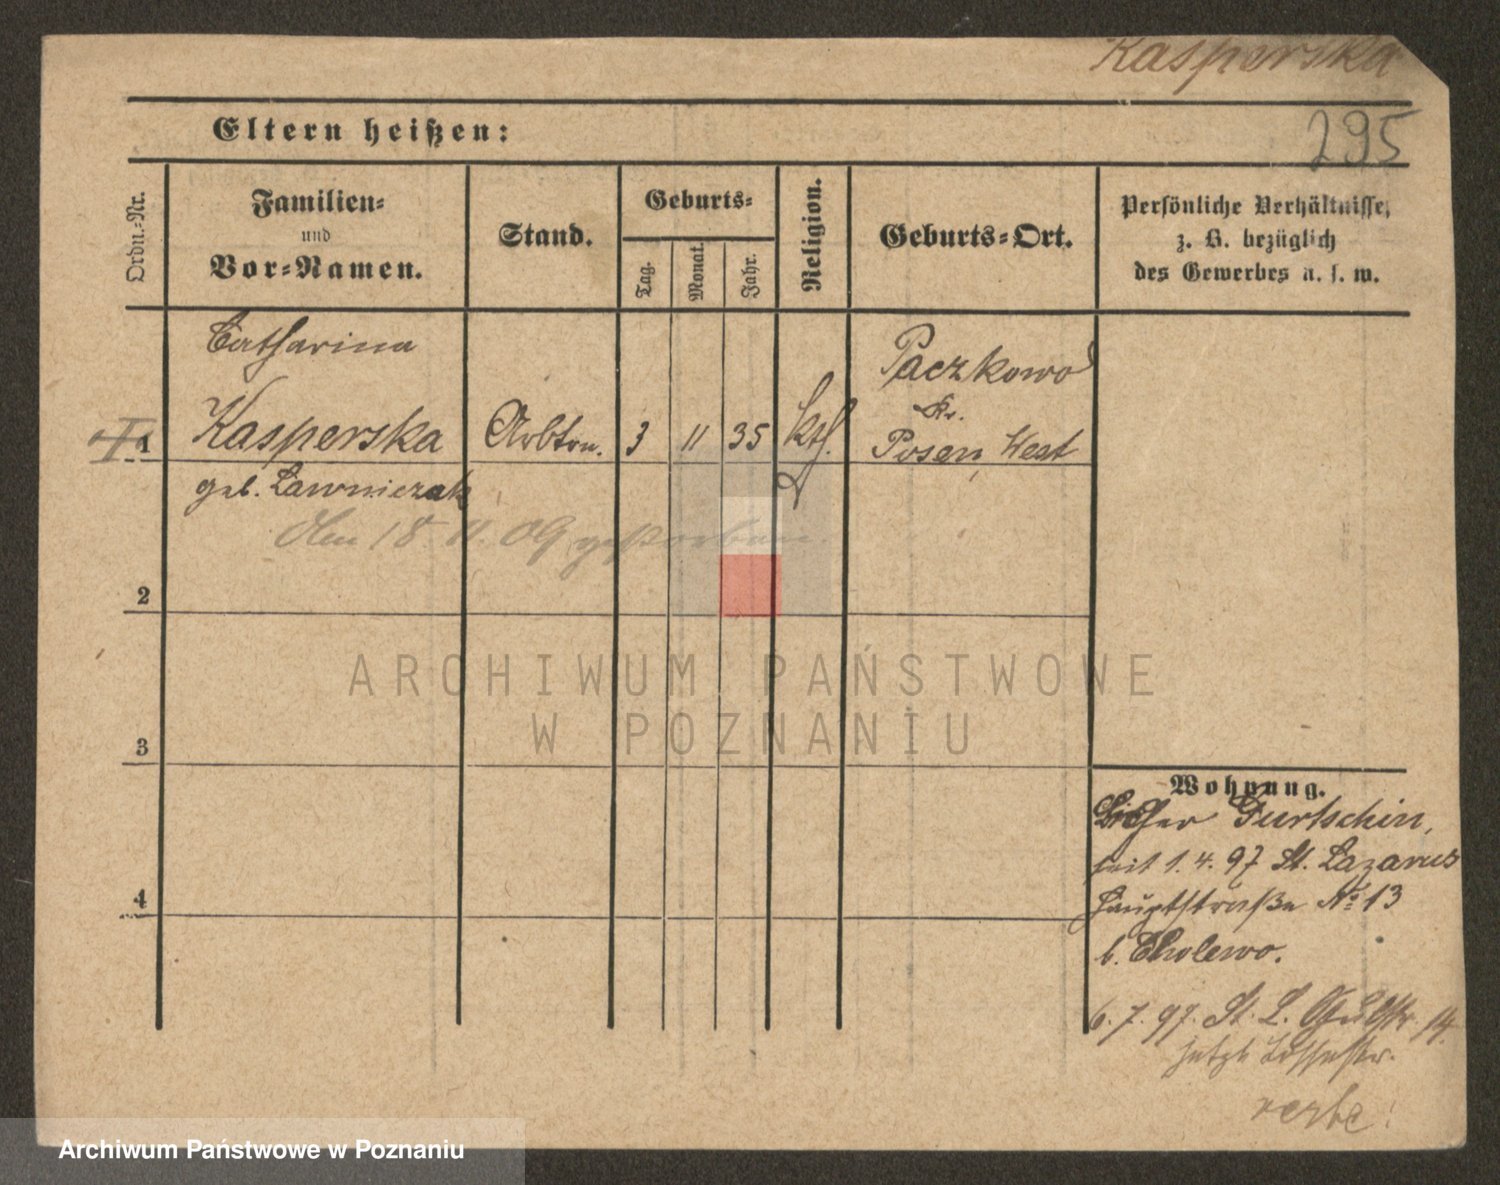 Kasperska
295
Eltern heißen:
Ordn.-Nr.
Familien-
und
Vor-Namen.
Stand.
Geburts-
Tag.
Monat.
Jahr.
Religion.
Geburts-Ort.
Persönliche Verhältnisse,
z. B. bezüglich
des Gewerbes u. s. w.
Catharina
Kasperska
geb. Lawniczak
1
Arbtrn.
3
11
35
kth.
Paczkowo
Kr.
Posen West
den 18. 11. 09 gestorben.
2
3
4
ARCHIWUM PAŃSTWOWE
W POZNANIU
Wohnung.
Bisher Gurtschin,
seit 1. 4. 97 St. Lazarus
Hauptstraße No 13
b. Cholewo.
6. 7. 97. St. L. 14
jetzt
Archiwum Państwowe w Poznaniu